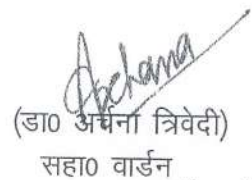 Archana
(डा0 अर्चना त्रिवेदी)
सहा0 वार्डन